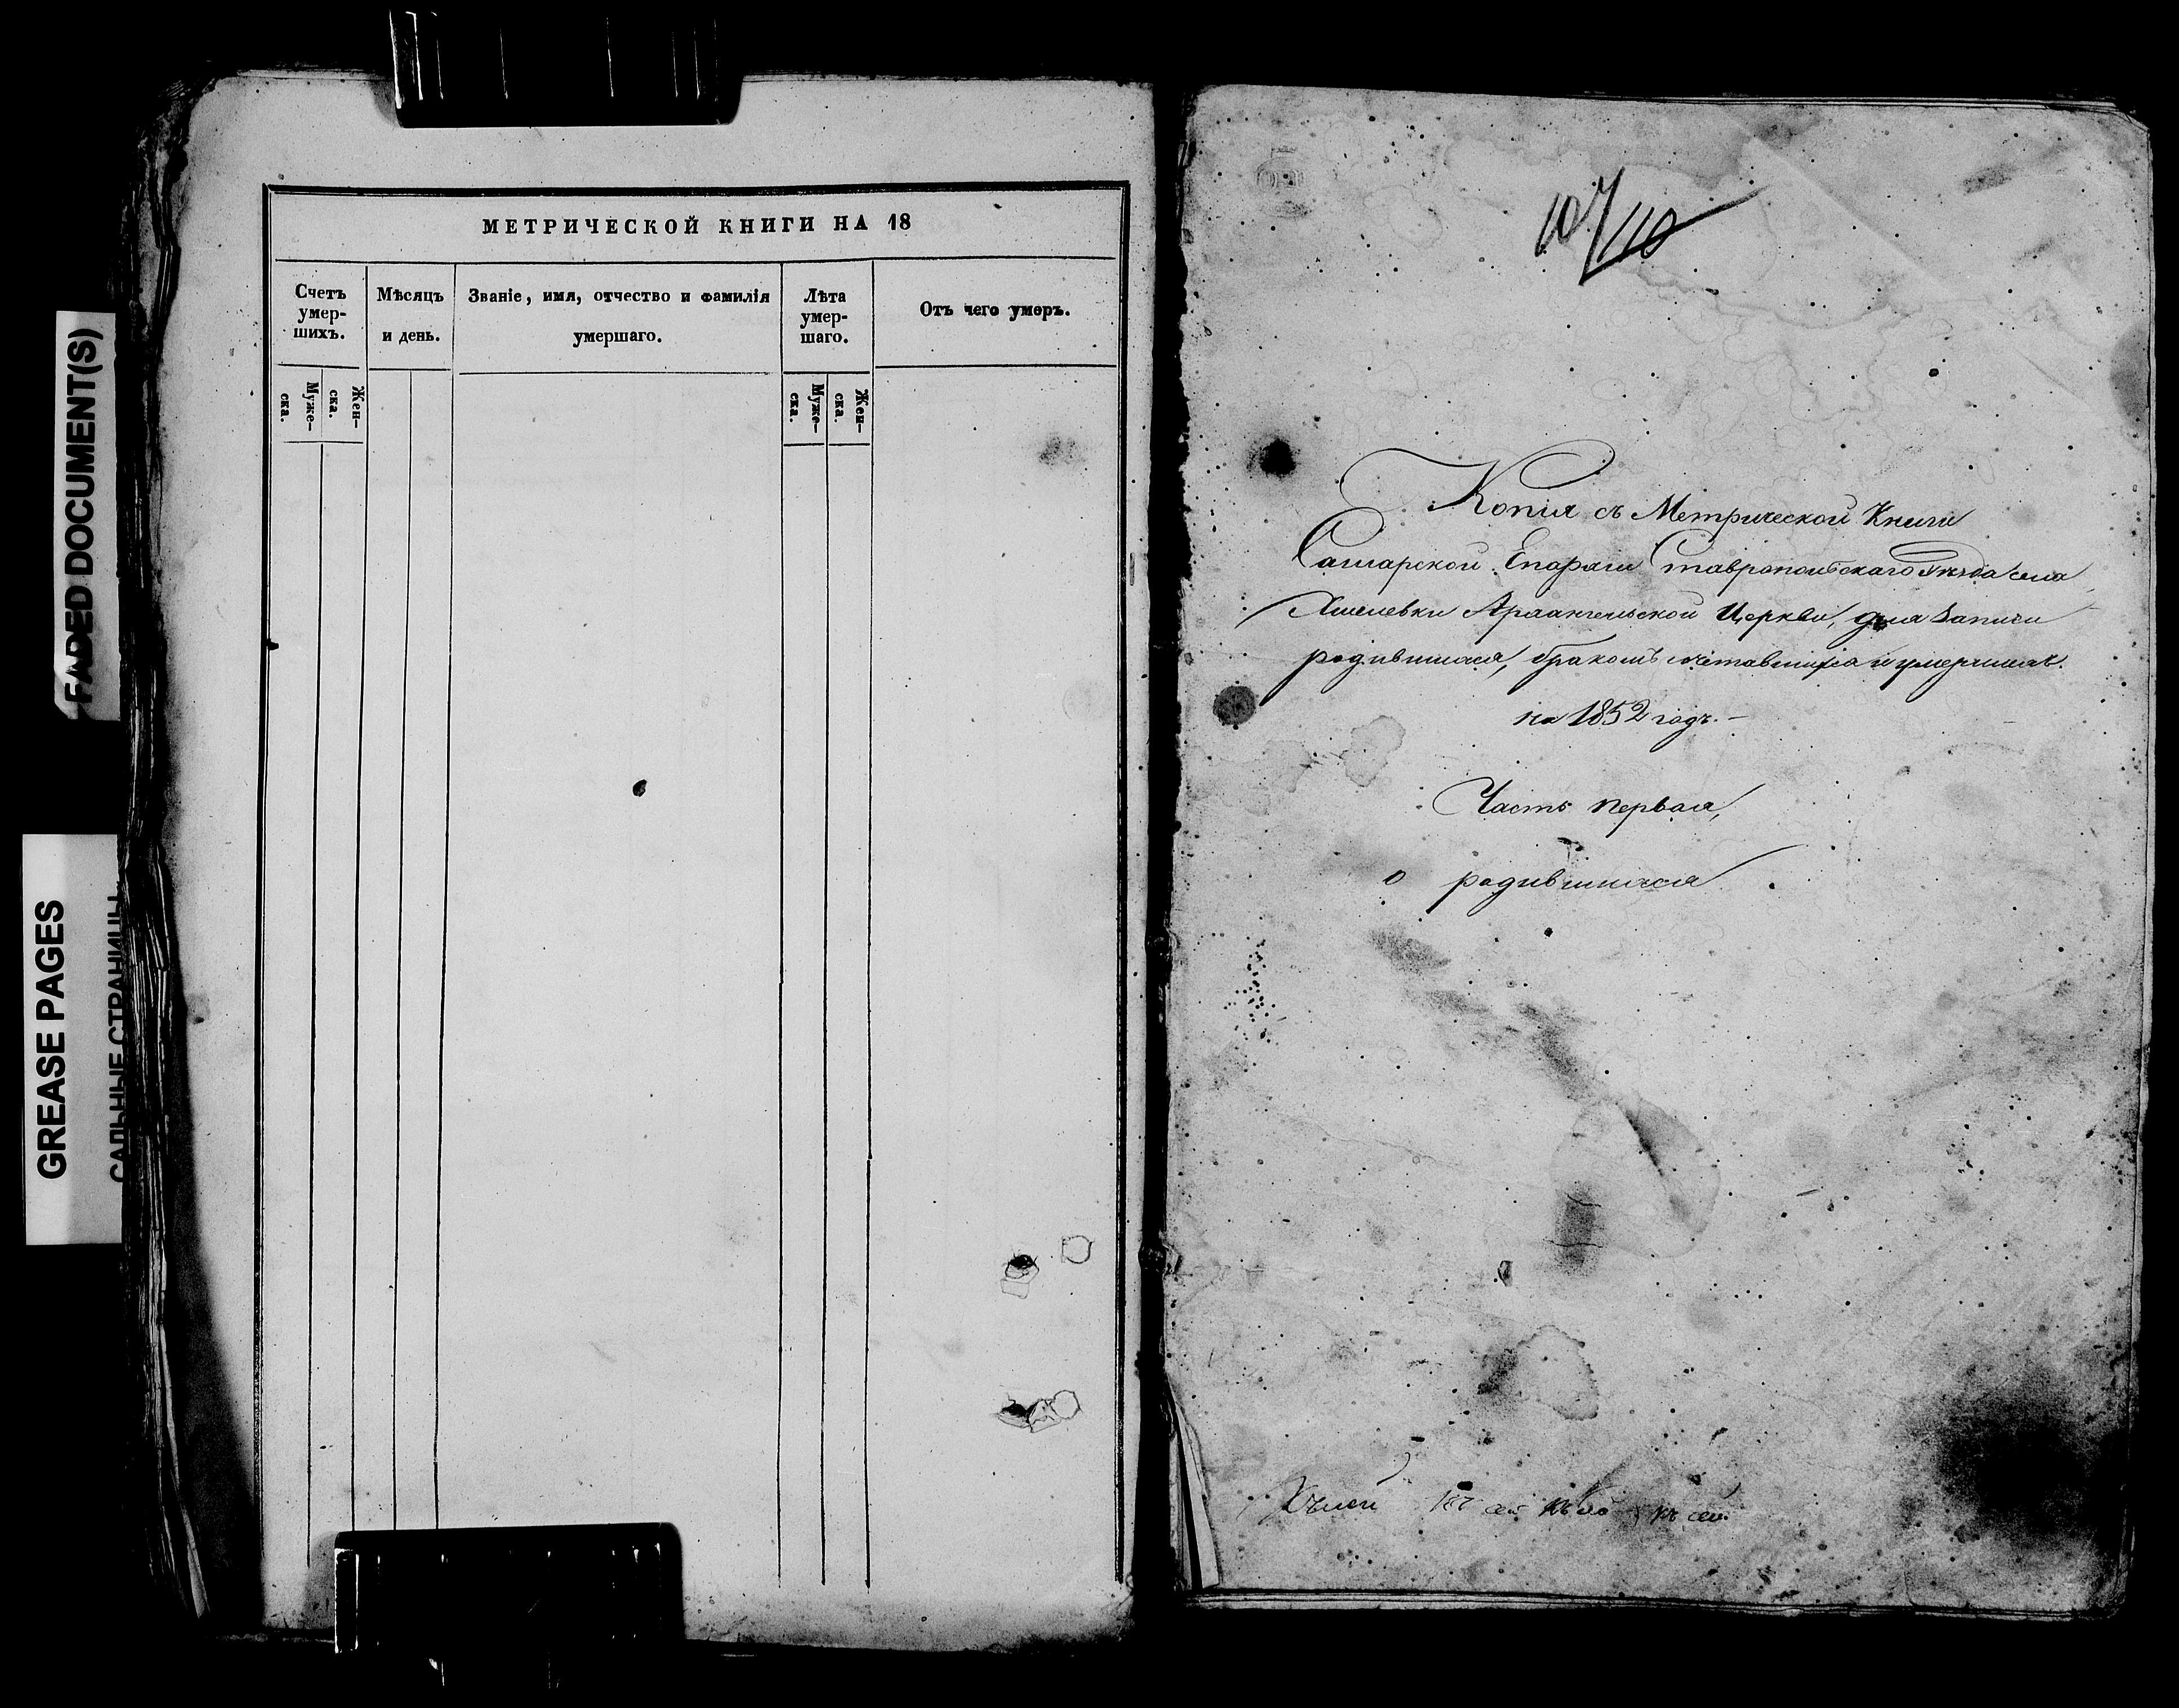 FADED DOCUMENT(S)
GREASE PAGES
САЛЬНЫЕ СТРАНИЦЫ
МЕТРИЧЕСКОЙ КНИГИ НА 18
Счетъ умер-
шихъ.
Мѣсяцъ
и день.
Званіе, имя, отчество и фамилія
умершаго.
Лѣта
умер-
шаго.
Отъ чего умеръ.
Муже-
ска.
Жен-
ска.
Муже-
ска.
Жен-
ска.
107/110
Копія съ Метрической Книги
Самарской Епархіи Ставропольскаго Уѣзда села
Хмелевки Архангельской Церкви, для записи
родившихся, бракомъ сочетавшихся и умершихъ.
на 1852 годъ.
Часть первая,
о родившихся